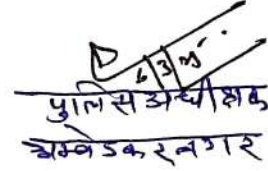 पुलिस अधीक्षक
अम्बेडकरनगर